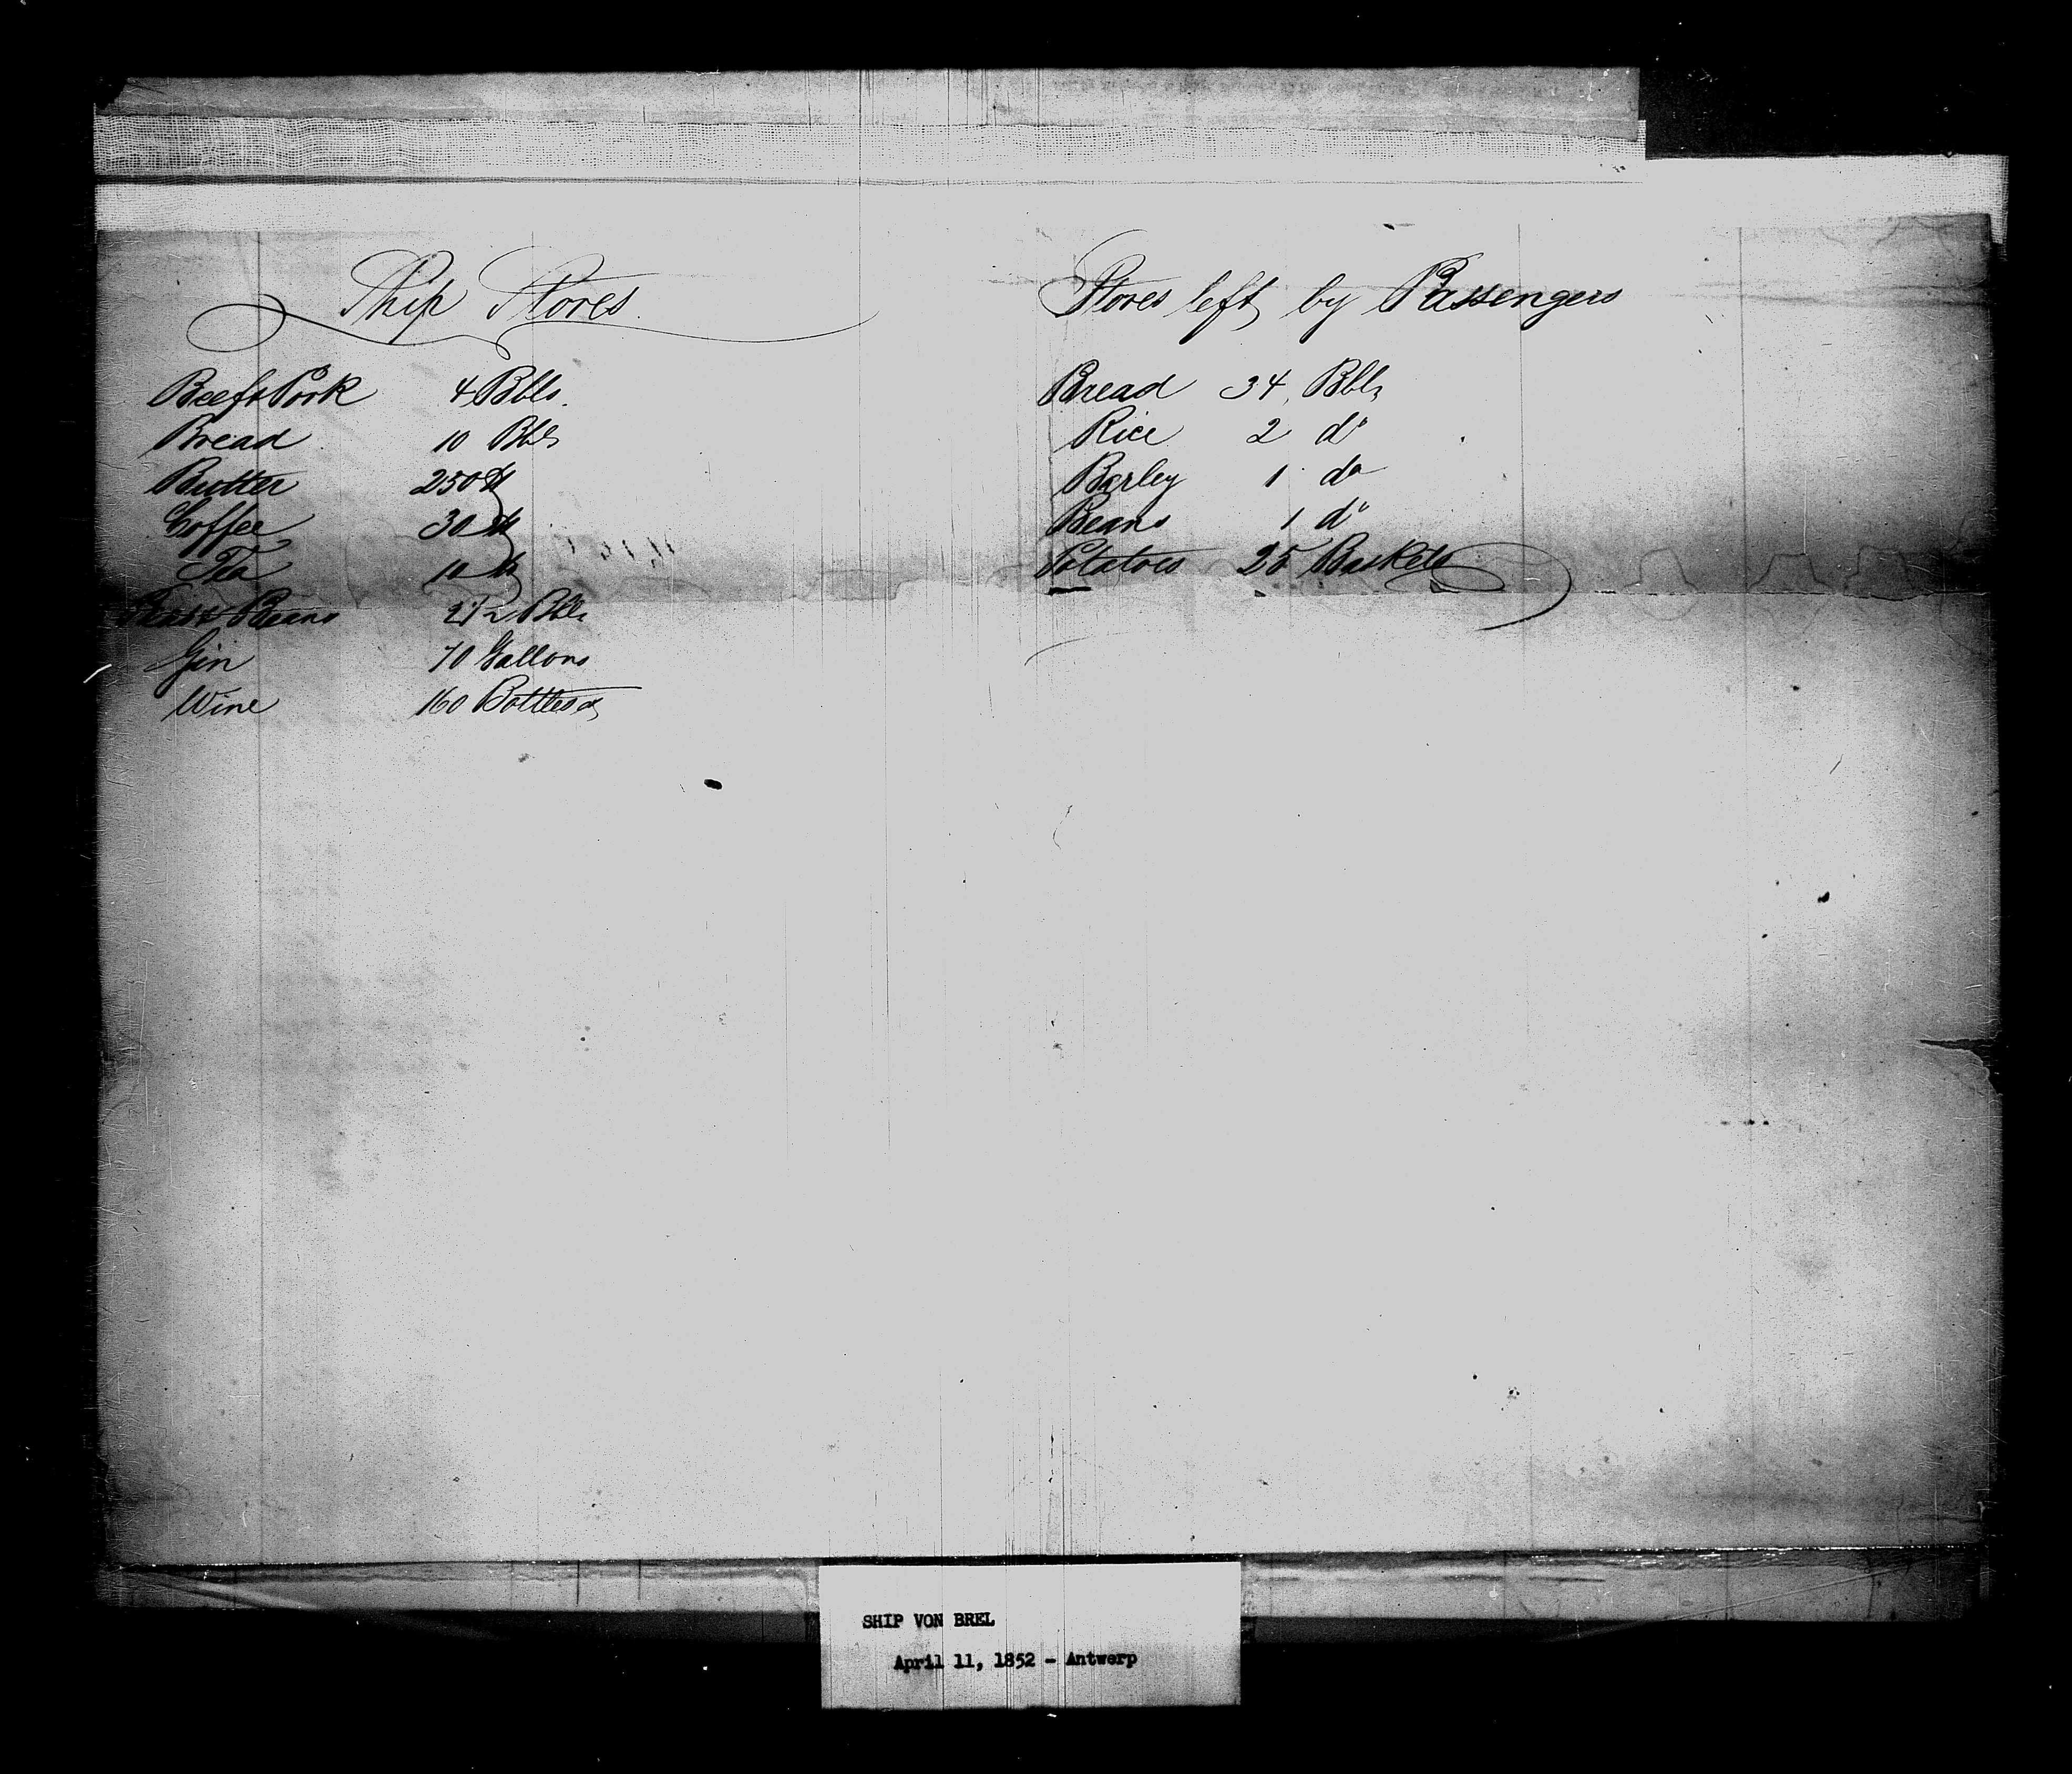 Ship Stores
Beef & Pork 4 Bbls.
Bread 10 Bbls
Butter 250 ℔
Coffee 30 ℔
Tea 10 ℔
Peas & Beans 2 1/2 Bbls
Gin 70 Gallons
Wine 160 Bottles
Stores left by Passengers
Bread 34 Bbls
Rice 2 do
Barley 1 do
Beans 1 do
Potatoes 25 Baskets
SHIP VON BREL
April 11, 1852 - Antwerp